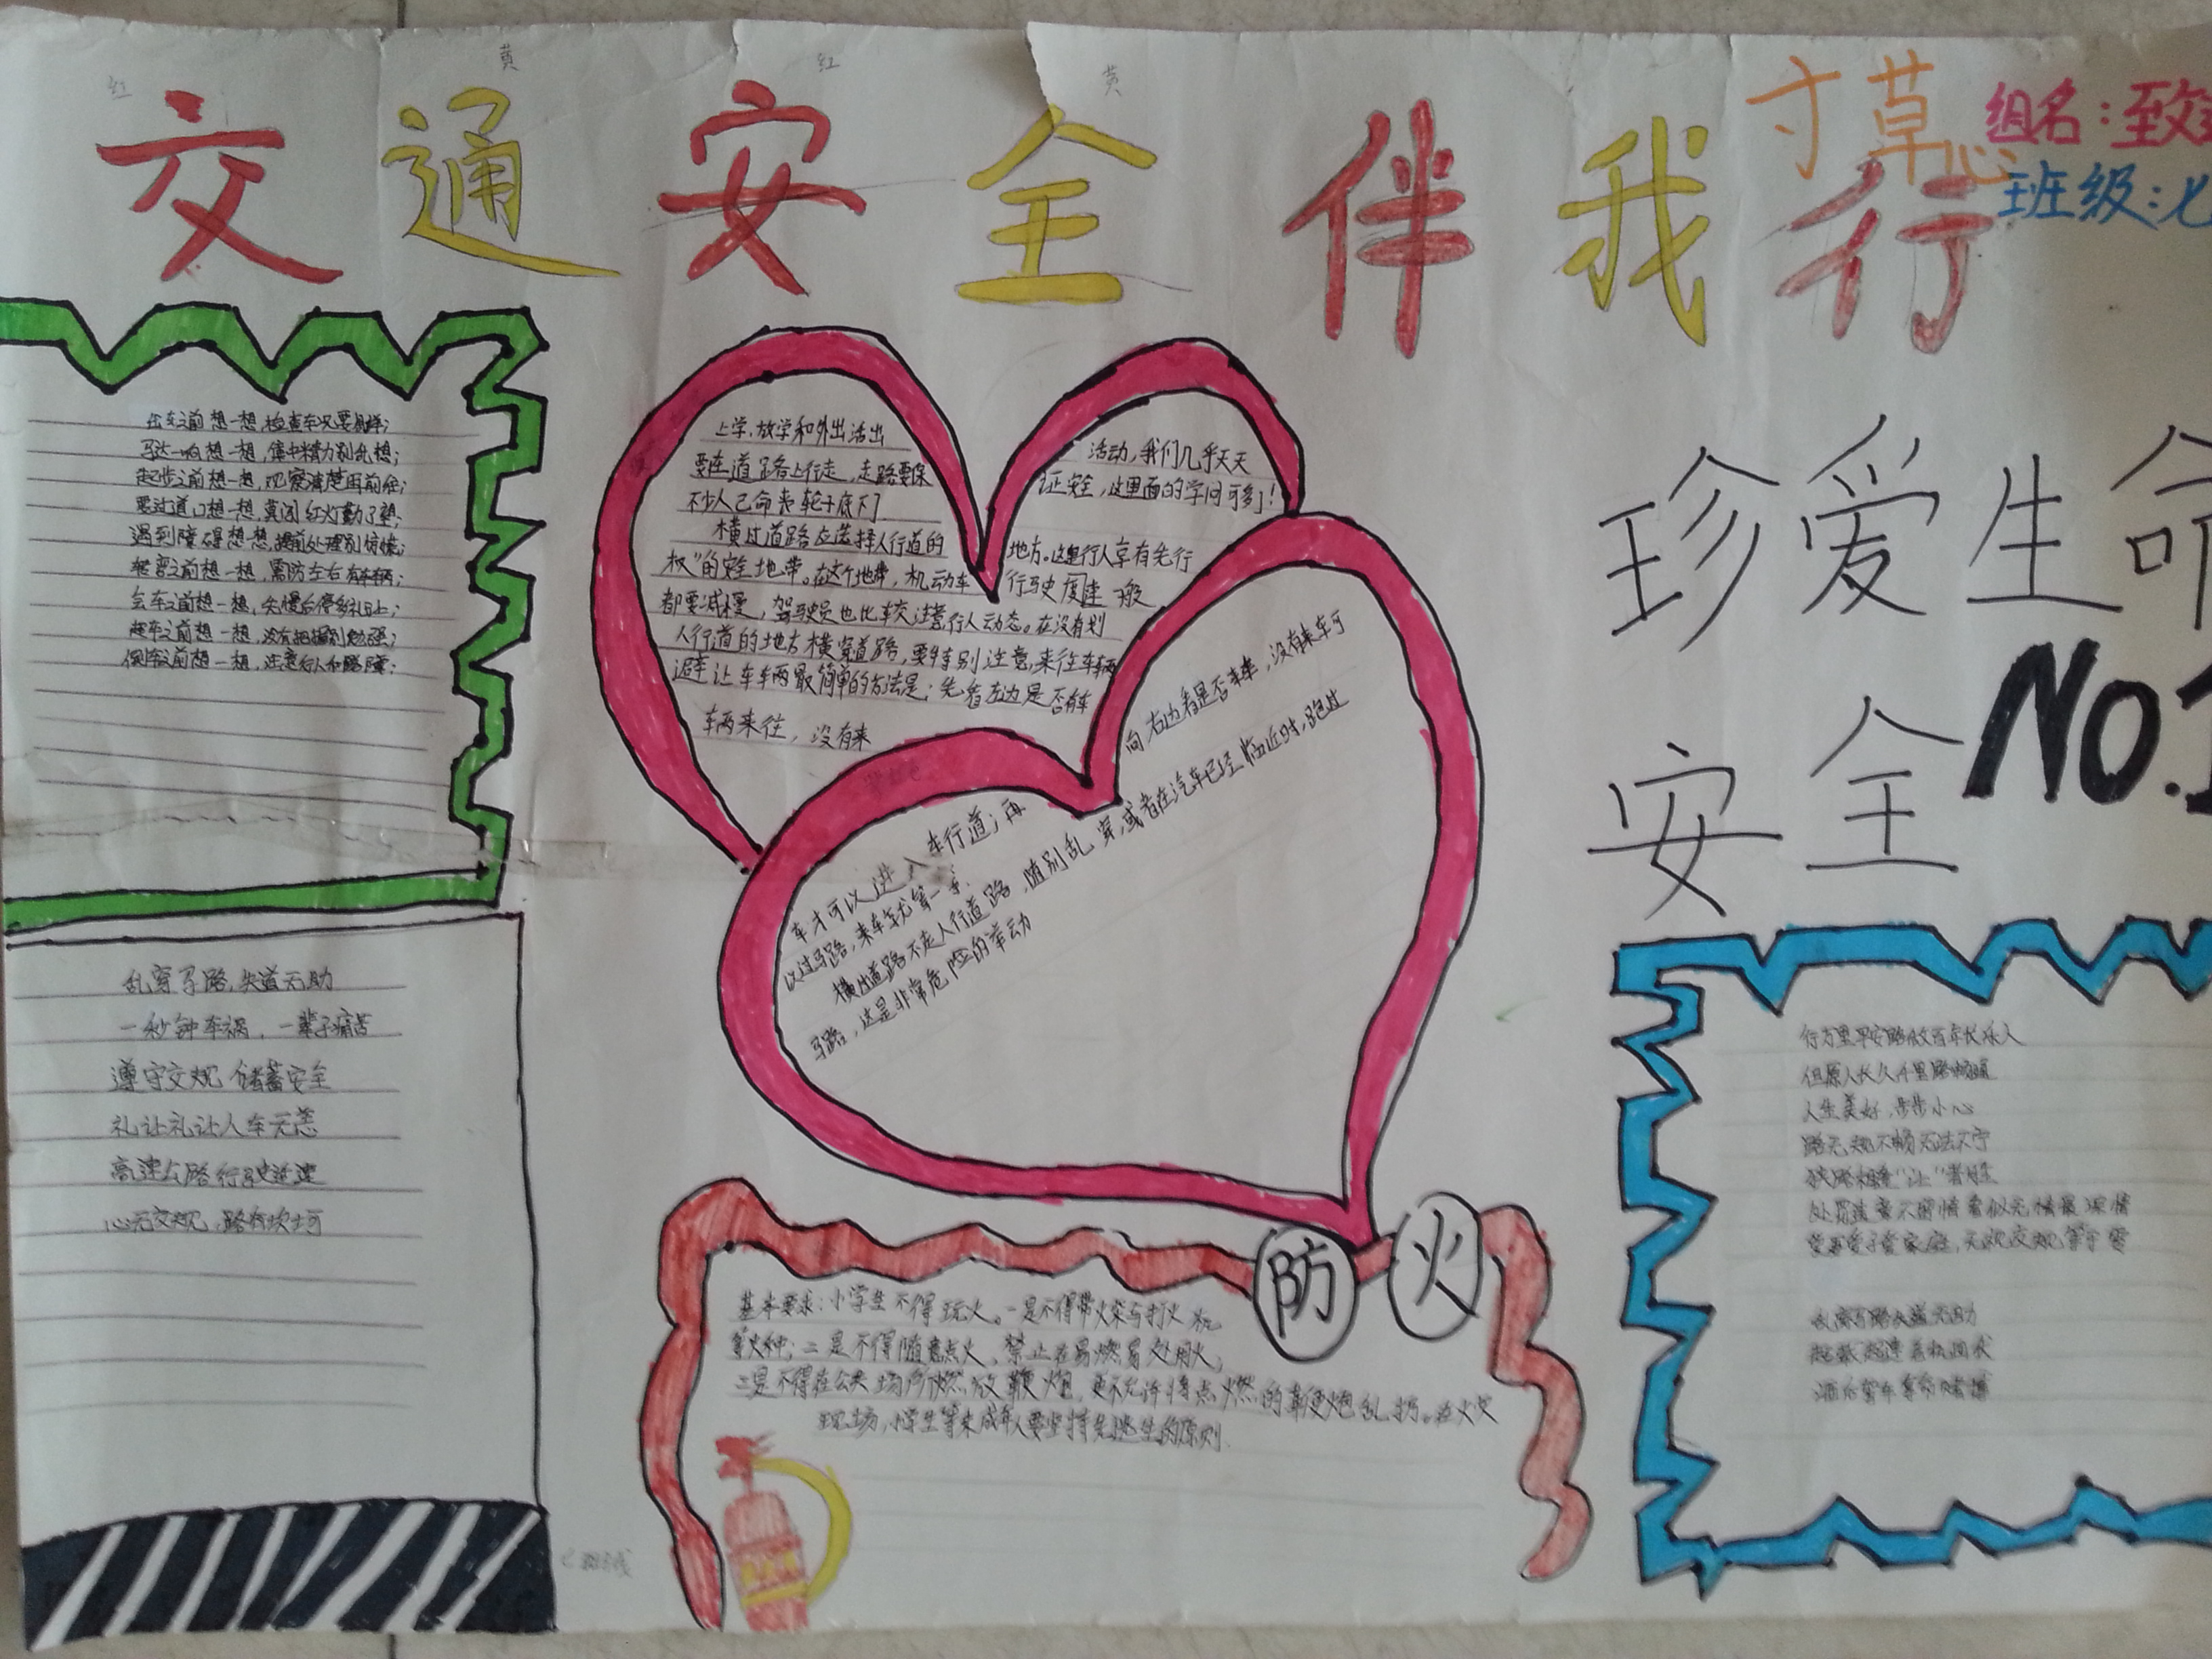 红
黄
红
黄
交通安全伴我行
寸草心
组名：致
班级：七
出车之前想一想，检查车况要周祥；
马达一响想一想，集中精力别乱想；
起步之前想一想，观察清楚再前往；
要过道口想一想，莫闯红灯勤了望；
遇到障碍想一想，提前处理别惊慌；
转弯之前想一想，需防左右有车辆；
会车之前想一想，先慢后停多礼让；
超车之前想一想，没有把握别勉强；
倒车之前想一想，注意行人和路障；
上学、放学和外出活出 活动，我们几乎天天
要在道路上行走，走路要保 证安全，这里面的学问可多了！
不少人已命丧轮子底下
横过道路应选择人行道的 地方。这里行人享有先行
权”的安全地带。在这个地带，机动车 行驶度速一般
都要减慢，驾驶员也比较注意行人动态。在没有划
人行道的地方横穿道路，要特别注意，来往车辆
避让车车两最简单的方法是：先看左边是否有车
车两来往，没有来
车才可以进入车行道；再 向右边看是否来车，没有来车可
以过马路，来车就等一等。
横过道路不走人行道路，随别乱穿，或者在汽车已经临近时，跑过
马路，这是非常危险的举动
珍爱生命
安全NO.1
乱穿马路，失道无助
一秒钟车祸，一辈子痛苦
遵守交规 储蓄安全
礼让礼让人车无恙
高速公路行驶莫速
心无交规，路有坎坷
防火
基本要求：小学生不得玩火。一是不得带火柴与打火机
等火种；二是不得随意点火，禁止在易燃易处用火；
三是不得在公共场所燃放鞭炮，更不允许将点燃的鞭炮乱扔。在火灾
现场，小学生等未成年人要坚持先逃生的原则.
行万里平安路做百年长乐人
但愿人长久千里路畅通
人生美好，步步小心
路无规不畅无法不宁
狭路相逢“让”者胜
处罚违章不留情看似无情最深情
爱妻爱子爱家庭，无视交规等于零
乱穿马路失道无助
超载超速危机四伏
酒后驾车拿命赌博